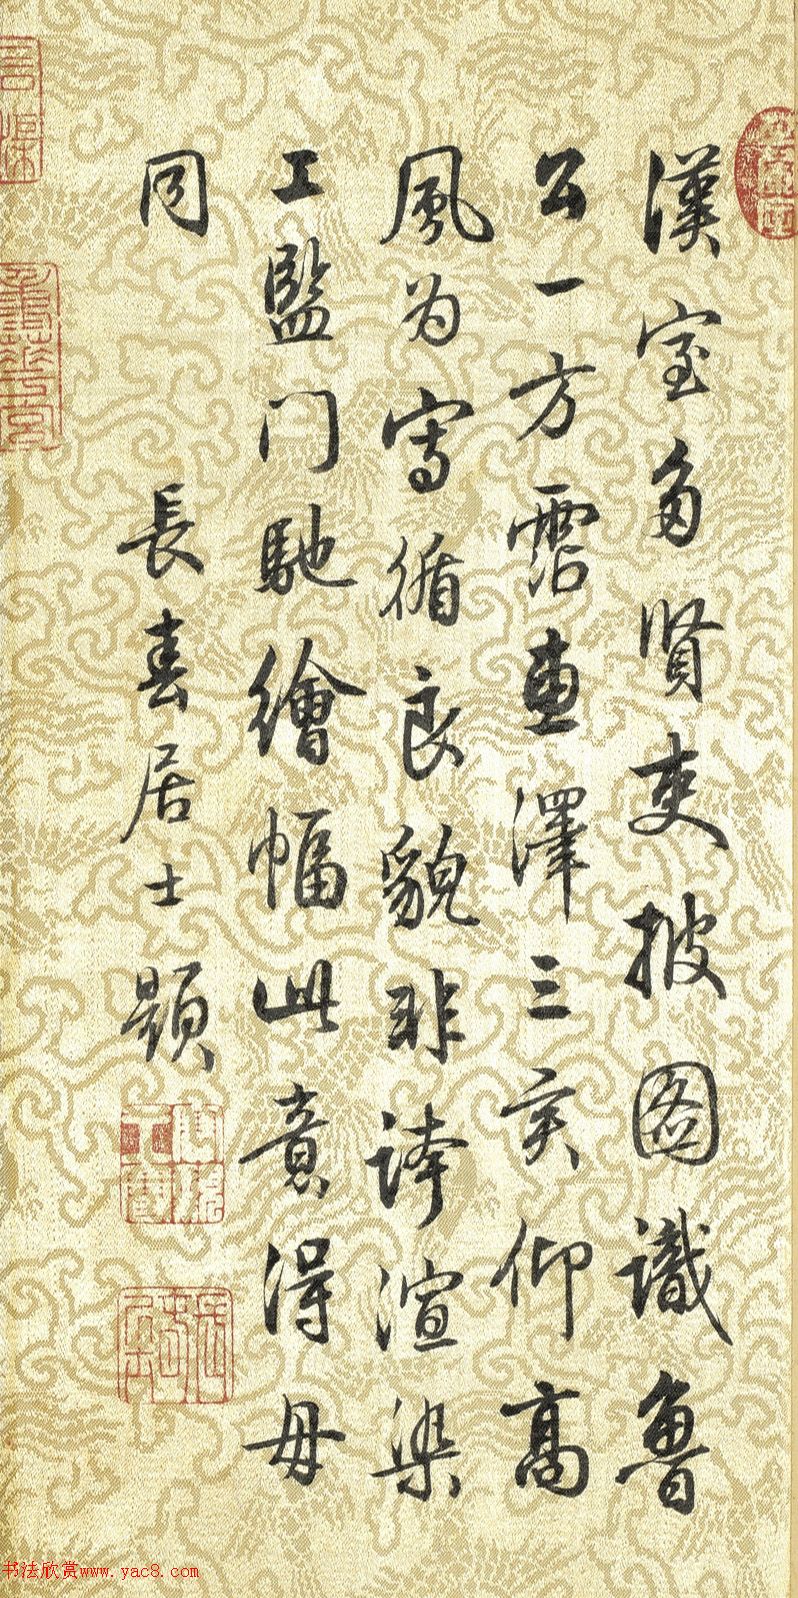 漢室多賢吏披圖識魯
公一方霑惠澤三異仰高
風為寫循良貌非誇渲染
工監門馳繪幅此意得毋
同 長春居士題
书法欣赏www.yac8.com